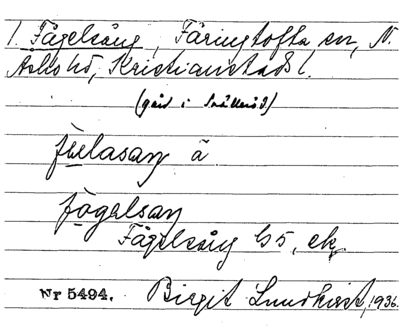 1. Fågelsång, Färingtofta sn, N.
Åsbo hd, Kristianstads l.
(gård i Snälleröd)
fuelasaŋ ä
fögelsaŋ
Fågelsång G5, ek.
Nr 5494. Birgit Lundkvist, 1936.